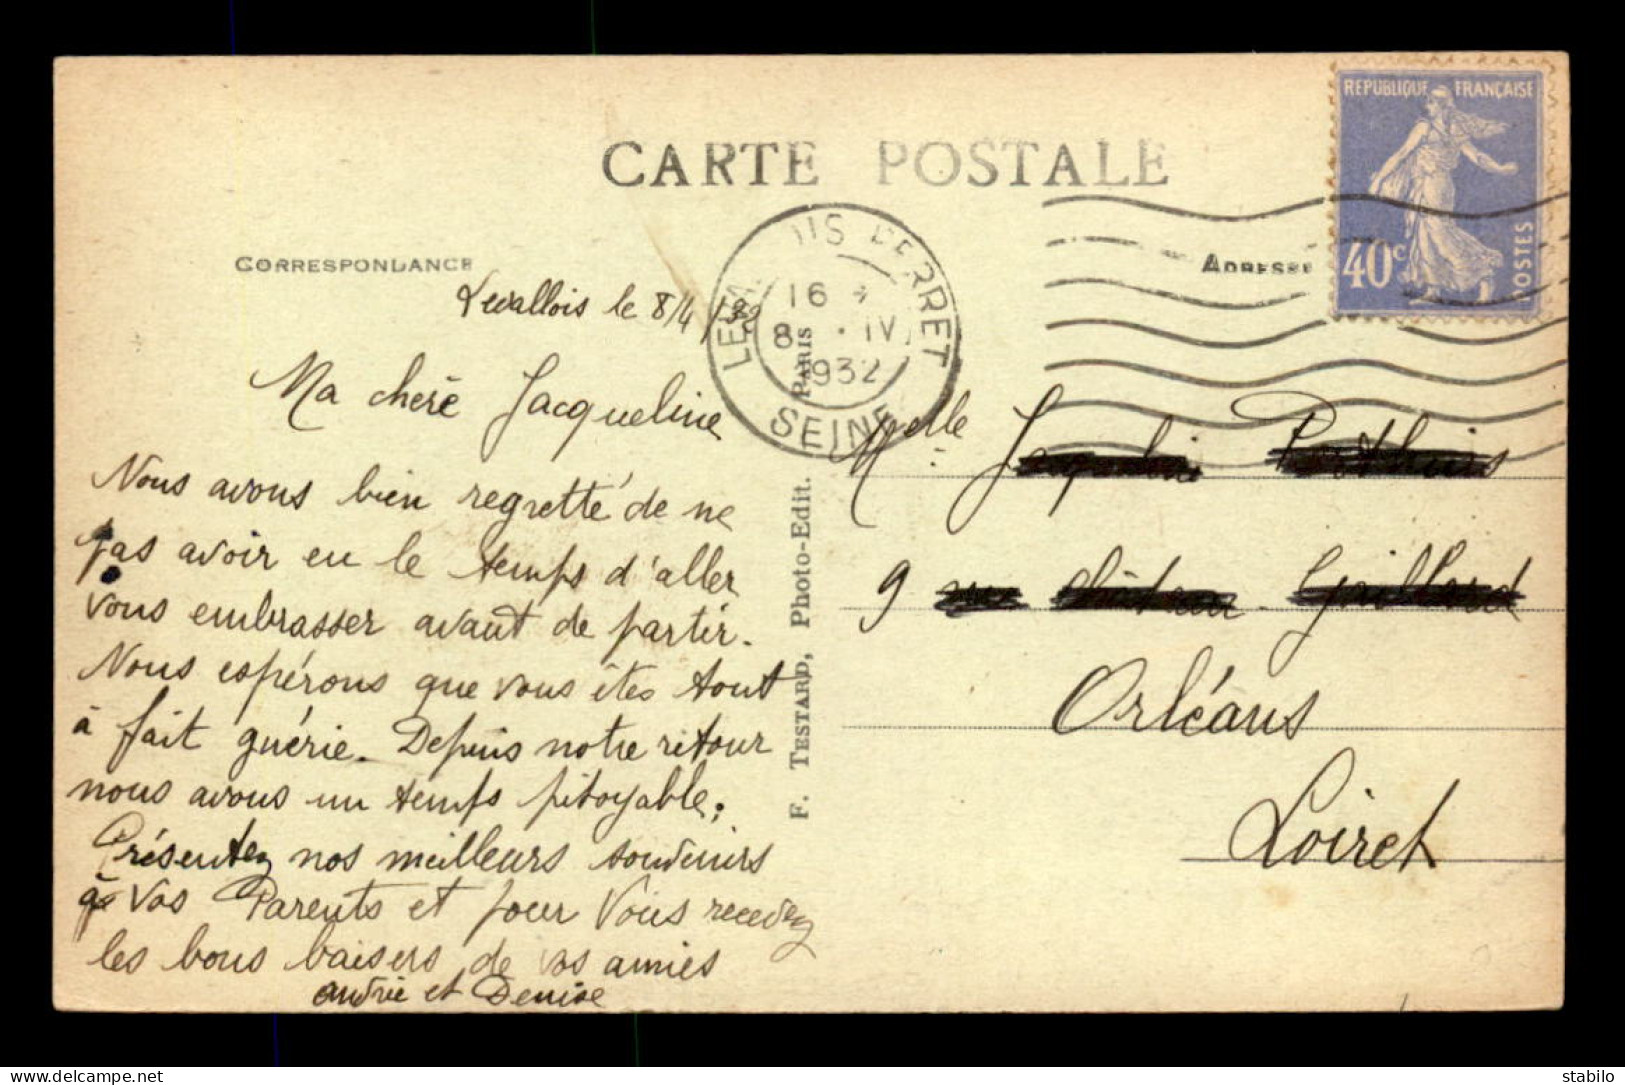 CARTE POSTALE
CORRESPONDANCE
ADRESSE
REPUBLIQUE FRANÇAISE
40c
POSTES
LEVALLOIS PERRET
16
8 · IV
1932
SEINE
Levallois le 8/4/32
Ma chère Jacqueline
Nous avons bien regretté de ne
pas avoir eu le temps d'aller
vous embrasser avant de partir.
Nous espérons que vous êtes tout
à fait guérie. Depuis notre retour
nous avons un temps pitoyable.
Présentez nos meilleurs souvenirs
à vos Parents et pour Vous recevez
les bons baisers de vos amies
Andrée et Denise
F. TESTARD, Photo-Edit. PARIS
Melle
9
Orléans
Loiret
delcampe.net
stabilo